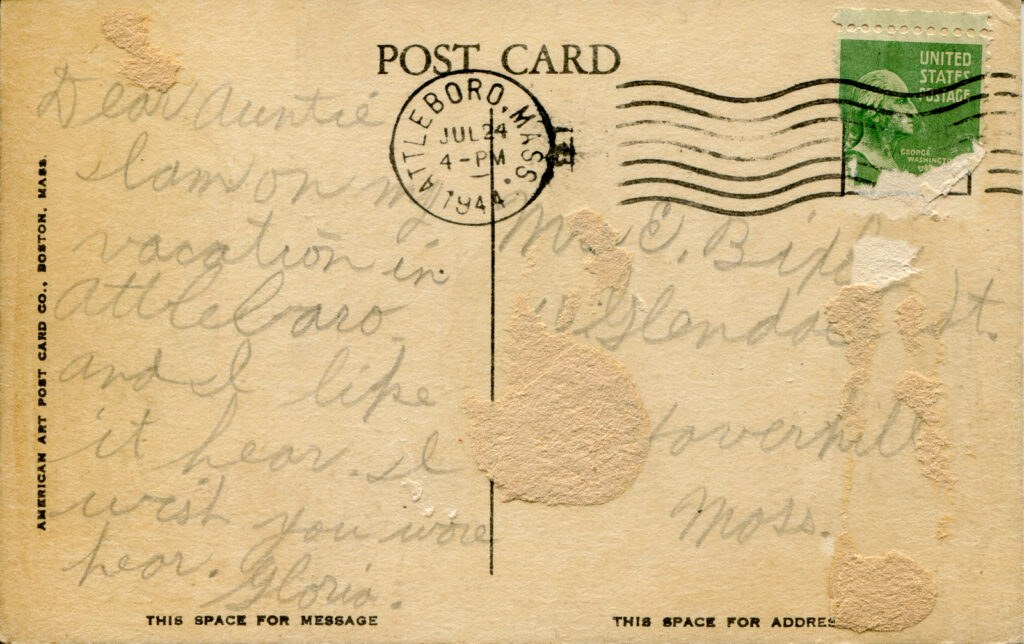 POST CARD
ATTLEBORO, MASS.
JUL 24
4-PM
1944
UNITED
STATES
POSTAGE
GEORGE
WASHINGTON
1
Dear Auntie
I am on my
vacation in
Attleboro
and I like
it hear. I
wish you wore
hear. Gloria.
E.
St.
Haverhill
Mass.
AMERICAN ART POST CARD CO., BOSTON, MASS.
THIS SPACE FOR MESSAGE
THIS SPACE FOR ADDRES